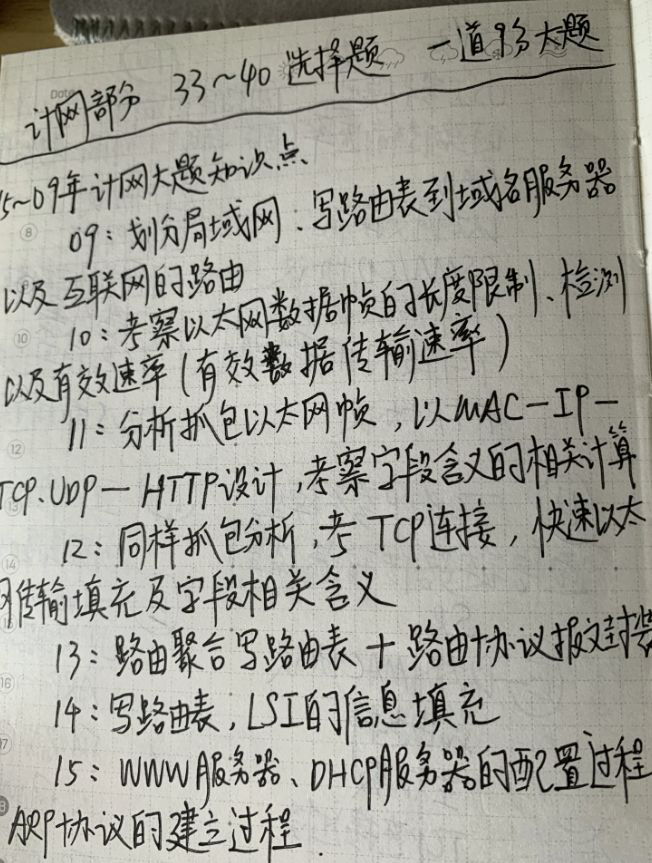 计网部分 33~40 选择题 一道9分大题
5~09年计网大题知识点
09：划分局域网、写路由表到域名服务器
以及互联网的路由
10：考察以太网数据帧的长度限制、检测
以及有效速率（有效数据传输速率）
11：分析抓包以太网帧，以MAC－IP－
TCP.UDP－HTTP设计，考察字段含义的相关计算
12：同样抓包分析，考TCP连接，快速以太
网传输填充及字段相关含义
13：路由聚合写路由表＋路由协议报文封装
14：写路由表，LSI的信息填充
15：WWW服务器、DHCP服务器的配置过程
ARP协议的建立过程